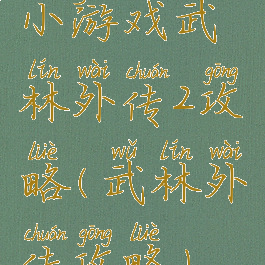 小游戏武
lín wài chuán gōng
林外传2攻
lüè wǔ lín wài
略(武林外
chuán gōng lüè
传攻略)